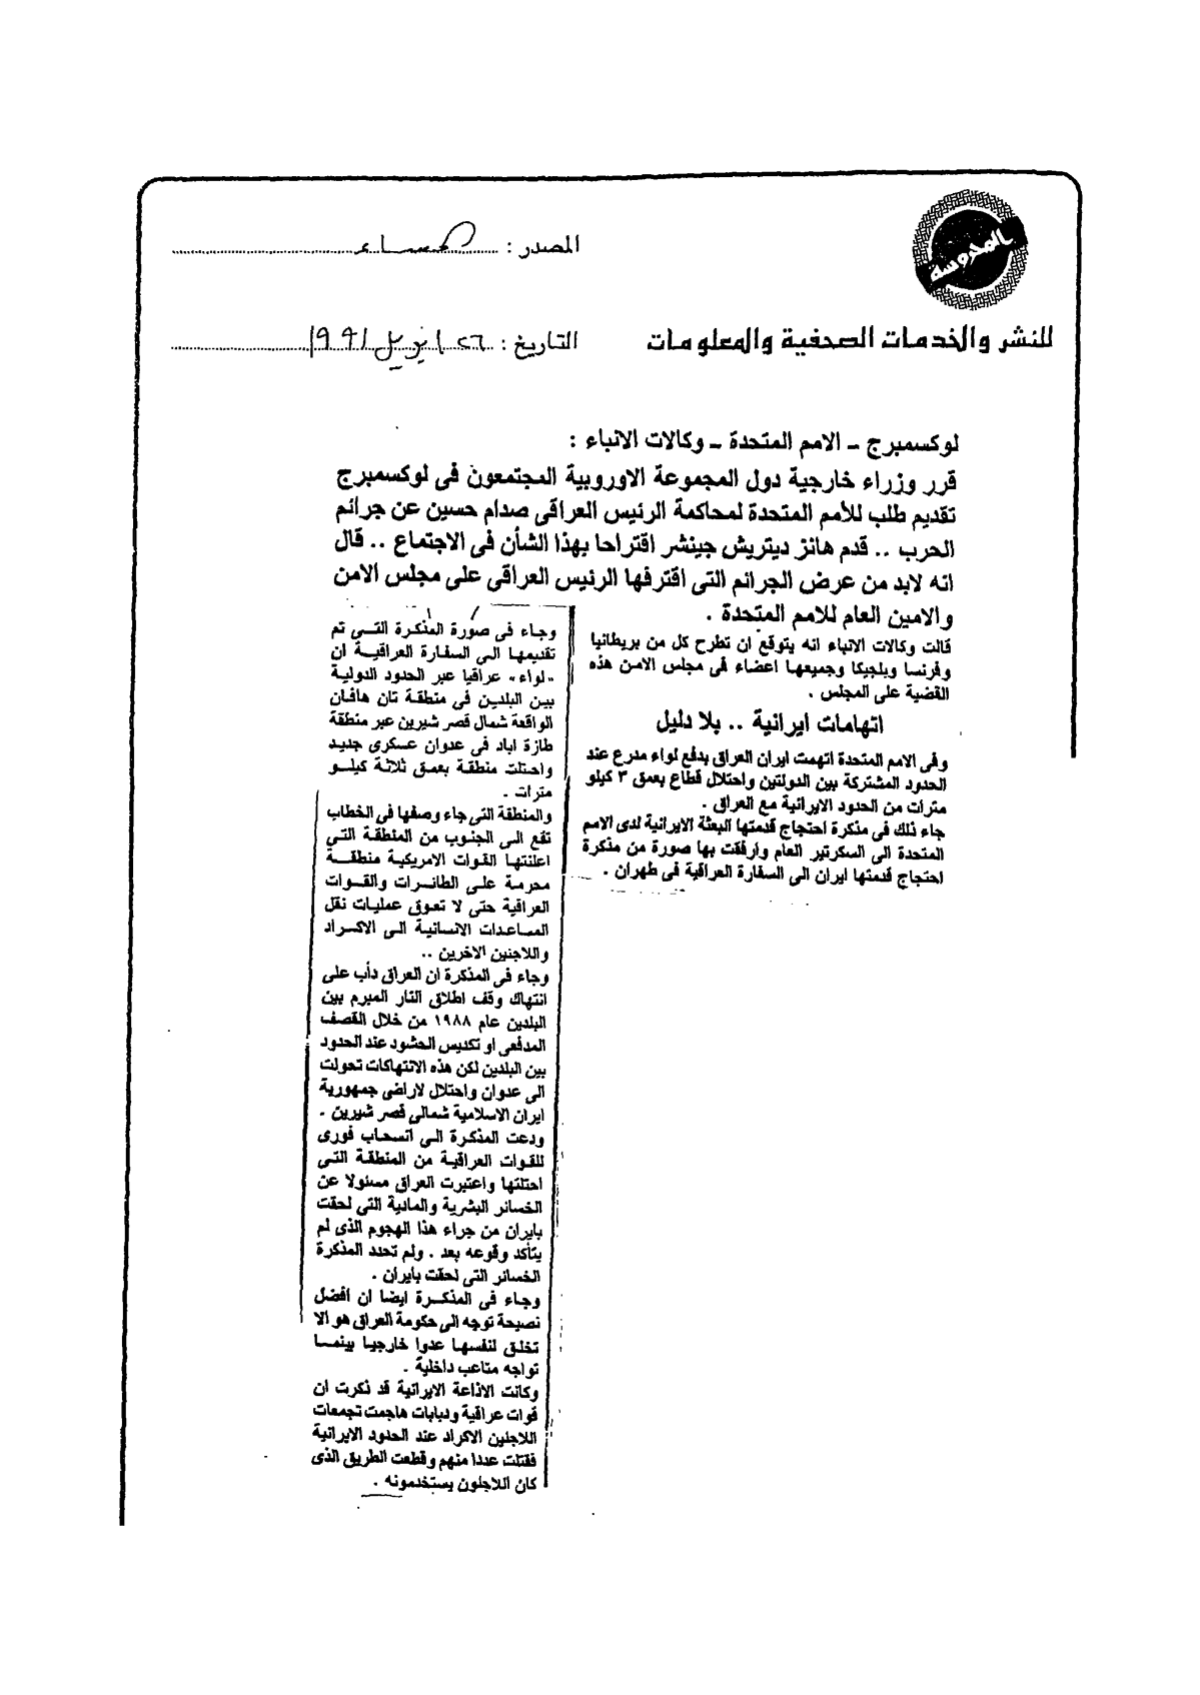 المحروسة
المصدر : المساء
للنشر والخدمات الصحفية والمعلومات
التاريخ : ٢٦ ابريل ١٩٩١
لوكسمبرج ــ الامم المتحدة ــ وكالات الانباء :
قرر وزراء خارجية دول المجموعة الاوروبية المجتمعون فى لوكسمبرج
تقديم طلب للأمم المتحدة لمحاكمة الرئيس العراقى صدام حسين عن جرائم
الحرب .. قدم هانز ديتريش جينشر اقتراحا بهذا الشأن فى الاجتماع .. قال
انه لابد من عرض الجرائم التى اقترفها الرئيس العراقى على مجلس الامن
والامين العام للامم المتحدة .
قالت وكالات الانباء انه يتوقع ان تطرح كل من بريطانيا
وفرنسا وبلجيكا وجميعها اعضاء فى مجلس الامن هذه
القضية على المجلس .
اتهامات ايرانية .. بلا دليل
وفى الامم المتحدة اتهمت ايران العراق بدفع لواء مدرع عند
الحدود المشتركة بين الدولتين واحتلال قطاع بعمق ٣ كيلو
مترات من الحدود الايرانية مع العراق .
جاء ذلك فى مذكرة احتجاج قدمتها البعثة الايرانية لدى الامم
المتحدة الى السكرتير العام وارفقت بها صورة من مذكرة
احتجاج قدمتها ايران الى السفارة العراقية فى طهران .
وجاء فى صورة المذكرة التى تم
تقديمها الى السفارة العراقية ان
«لواء» عراقيا عبر الحدود الدولية
بين البلدين فى منطقة تان هافان
الواقعة شمال قصر شيرين عبر منطقة
طازة اباد فى عدوان عسكرى جديد
واحتلت منطقة بعمق ثلاثة كيلو
مترات .
والمنطقة التى جاء وصفها فى الخطاب
تقع الى الجنوب من المنطقة التى
اعلنتها القوات الامريكية منطقة
محرمة على الطائرات والقوات
العراقية حتى لا تعوق عمليات نقل
المساعدات الانسانية الى الاكراد
واللاجئين الاخرين ..
وجاء فى المذكرة ان العراق دأب على
انتهاك وقف اطلاق النار المبرم بين
البلدين عام ١٩٨٨ من خلال القصف
المدفعى او تكديس الحشود عند الحدود
بين البلدين لكن هذه الانتهاكات تحولت
الى عدوان واحتلال لاراضى جمهورية
ايران الاسلامية شمالى قصر شيرين .
ودعت المذكرة الى انسحاب فورى
للقوات العراقية من المنطقة التى
احتلتها واعتبرت العراق مسئولا عن
الخسائر البشرية والمادية التى لحقت
بايران من جراء هذا الهجوم الذى لم
يتأكد وقوعه بعد . ولم تحدد المذكرة
الخسائر التى لحقت بايران .
وجاء فى المذكرة ايضا ان افضل
نصيحة توجه الى حكومة العراق هو الا
تخلق لنفسها عدوا خارجيا بينما
تواجه متاعب داخلية .
وكانت الاذاعة الايرانية قد ذكرت ان
قوات عراقية ودبابات هاجمت تجمعات
اللاجئين الاكراد عند الحدود الايرانية
فقتلت عددا منهم وقطعت الطريق الذى
كان اللاجئون يستخدمونه .